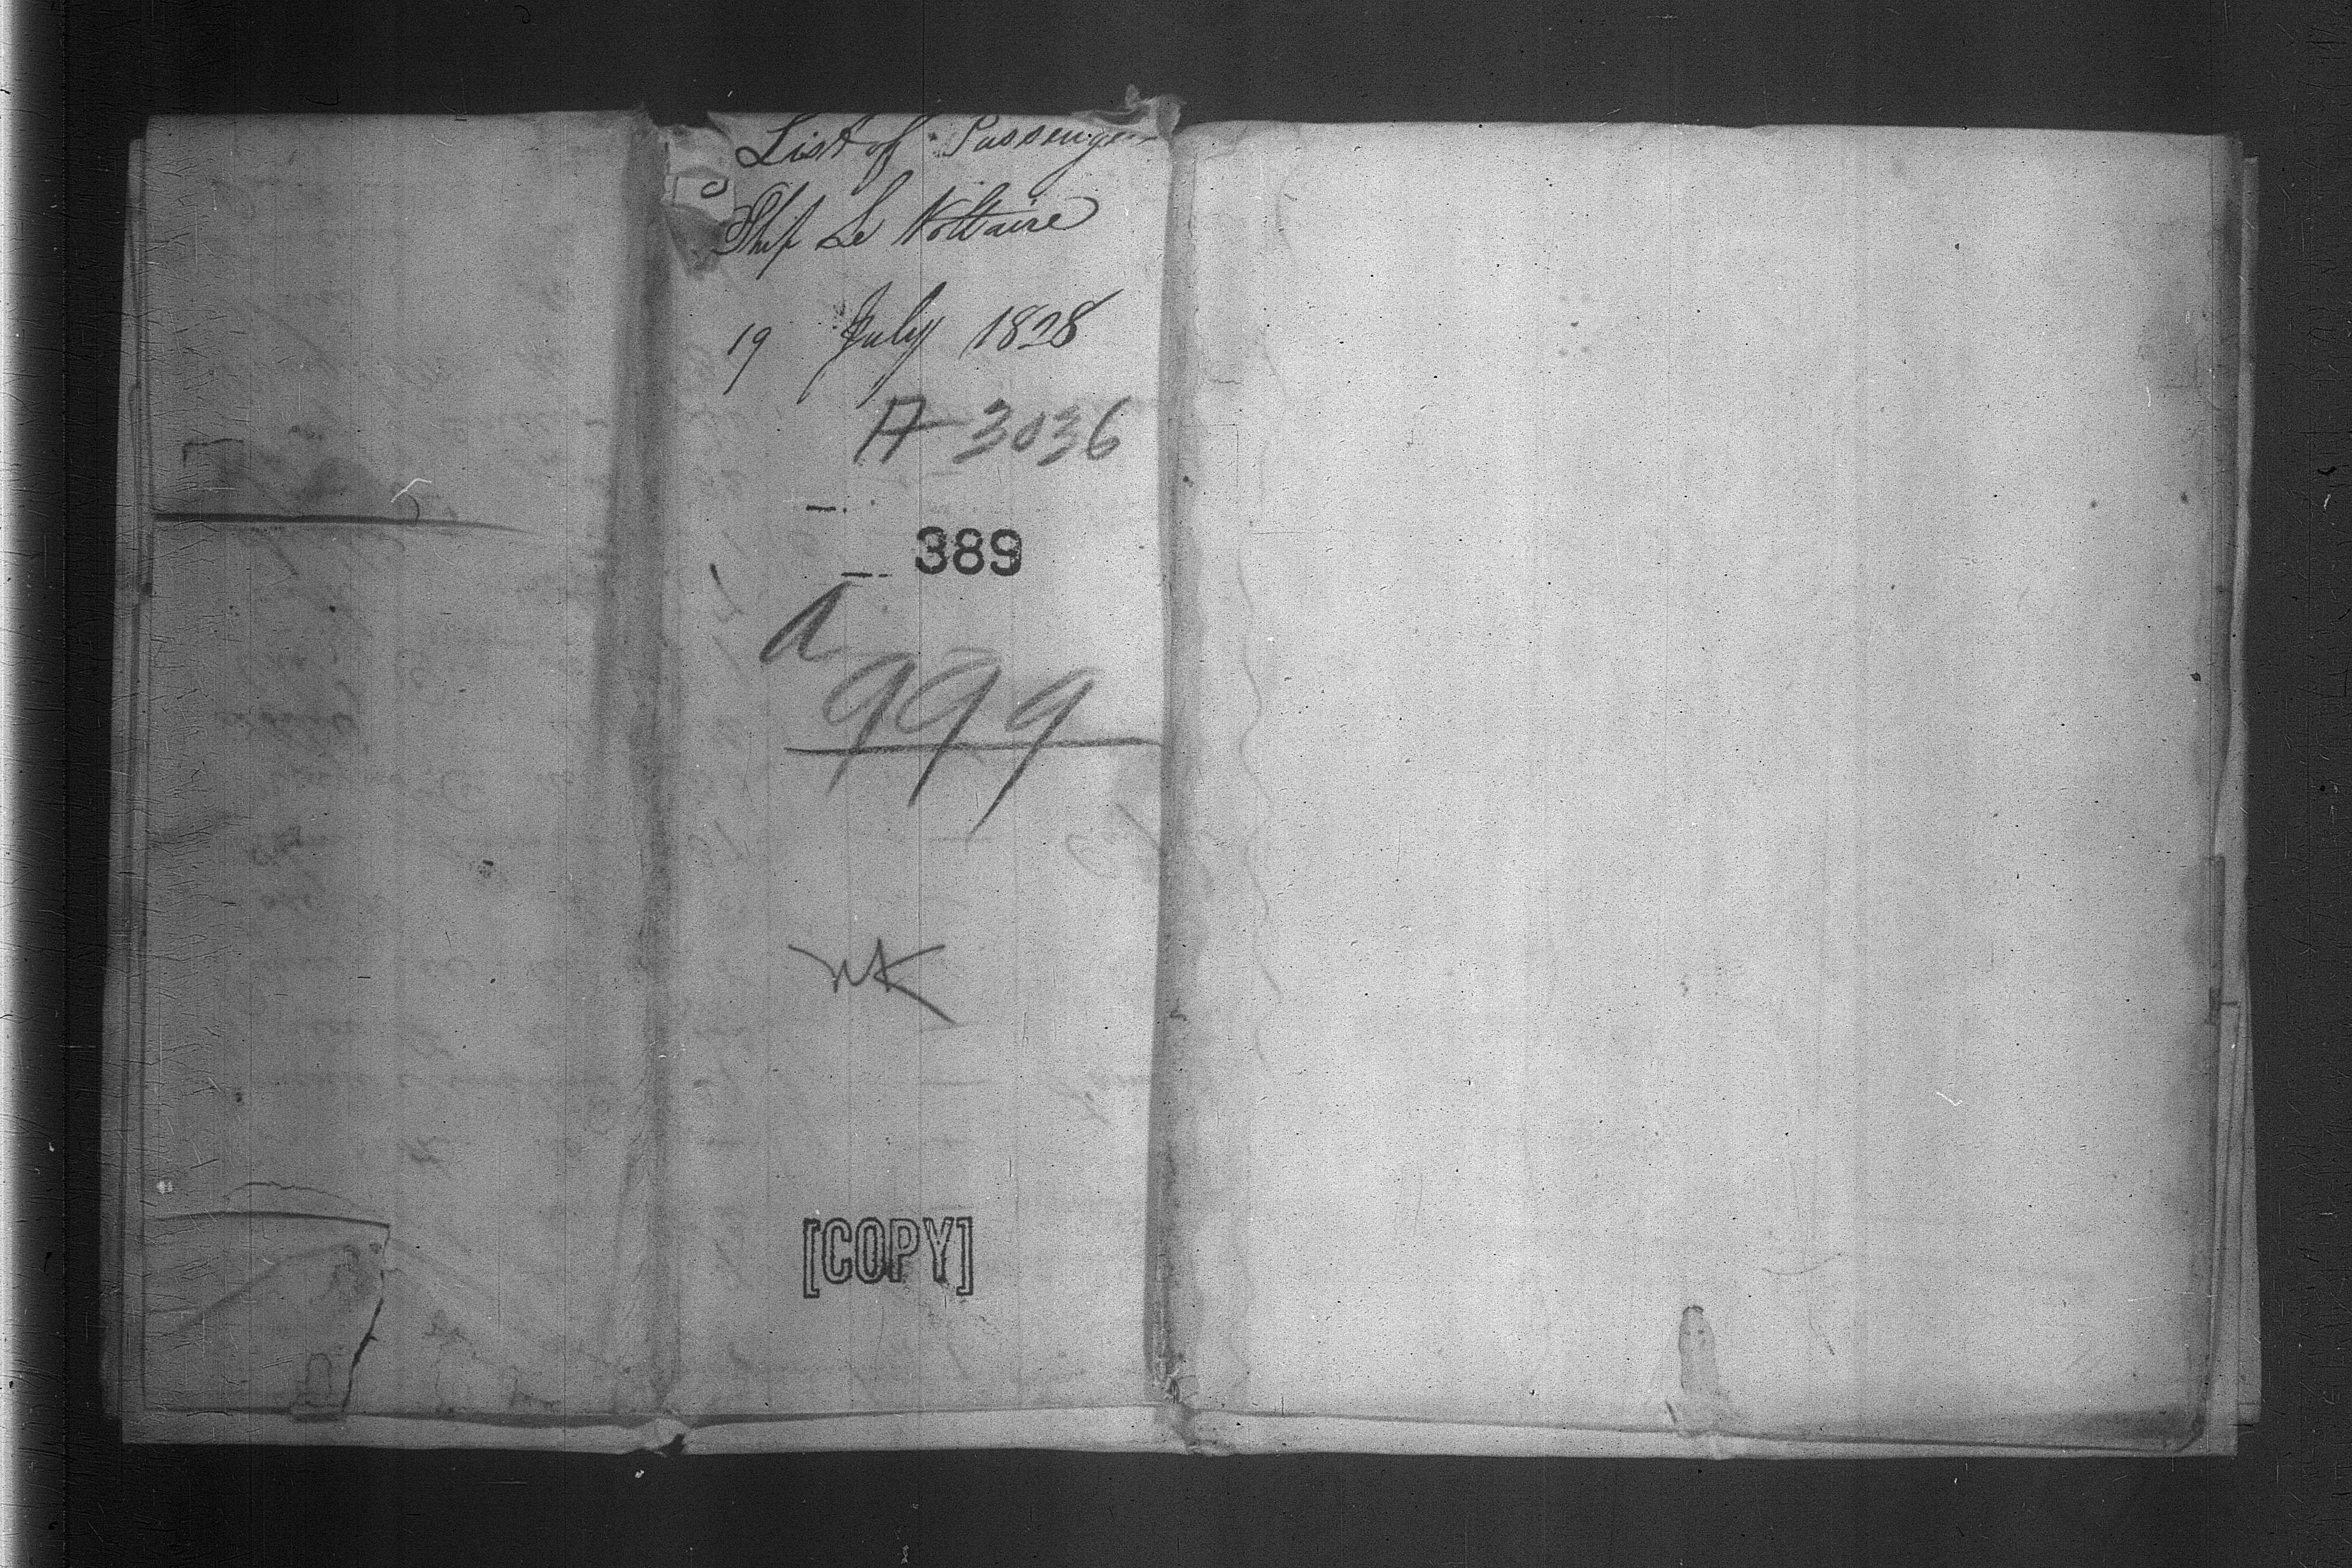 List of Passengers
Ship Le Voltaire
19 July 1828
A 3036
389
A
999
[COPY]